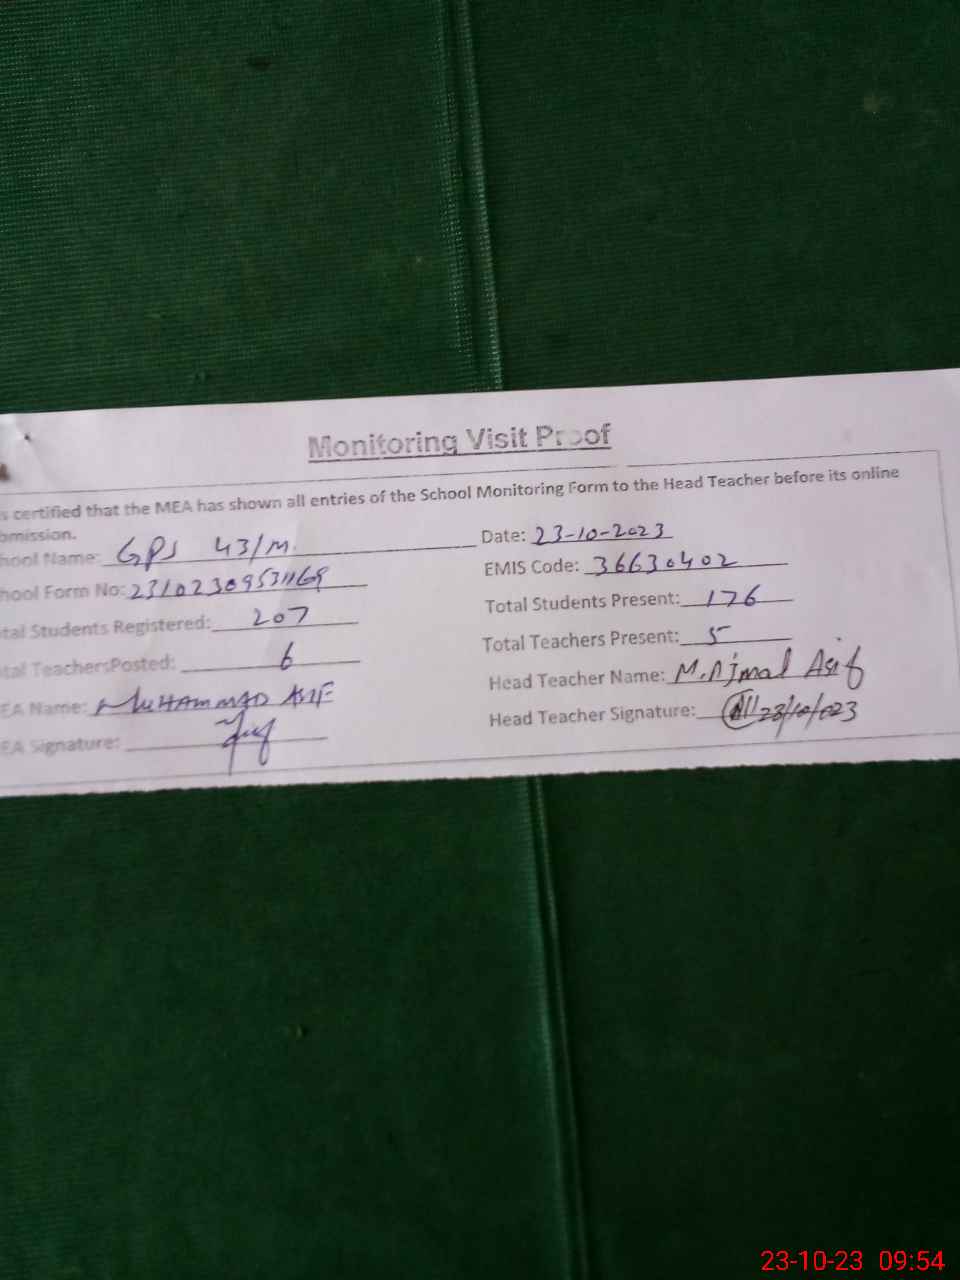 Monitoring Visit Proof
s certified that the MEA has shown all entries of the School Monitoring Form to the Head Teacher before its online
bmission.
hool Name: GPS 43/M.
Date: 23-10-2023
hool Form No:
EMIS Code: 36630402
tal Students Registered: 207
Total Students Present: 176
tal TeachersPosted: 6
Total Teachers Present: 5
EA Name: MUHAMMAD ASIF
Head Teacher Name: M. Ajmal Asif
EA Signature:
Head Teacher Signature:
23-10-23 09:54